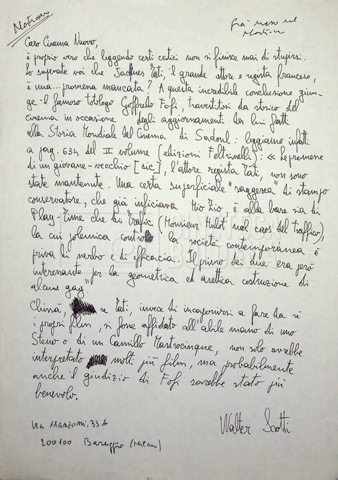 Caro Cinema Nuovo,
è proprio vero che leggendo certi critici non si finisce mai di stupirsi.
Lo sapevate voi che Jacques Tati, il grande attore e regista francese,
è una... promessa mancata? A questa incredibile conclusione giun-
ge il famoso totologo Goffredo Fofi, travestitosi da storico del
cinema in occasione degli aggiornamenti da lui fatti
alla Storia Mondiale del Cinema di Sadoul: leggiamo infatti
a pag. 634 del II volume (edizioni Feltrinelli): « Le promesse
di un giovane-vecchio [sic], l'attore regista Tati, non sono
state mantenute. Una certa superficiale "saggezza" di stampo
conservatore, che già inficiava Mio Zio, è alla base sia di
Play-Time che di Trafic (Monsieur Hulot nel caos del traffico),
la cui polemica contro la società contemporanea è
priva di nerbo e di efficacia. Il primo dei due era però
interessante per la geometrica ed asettica costruzione di
alcuni gag"
Chissà, se Tati, invece di incaponirsi a fare da sé
i propri film, si fosse affidato all'abile mano di uno
Steno o di un Camillo Mastrocinque, non solo avrebbe
interpretato molti più film, ma probabilmente
anche il giudizio di Fofi sarebbe stato più
benevolo.
Walter Scotti
Via Manzoni, 33A
200100 Bareggio (Milano)